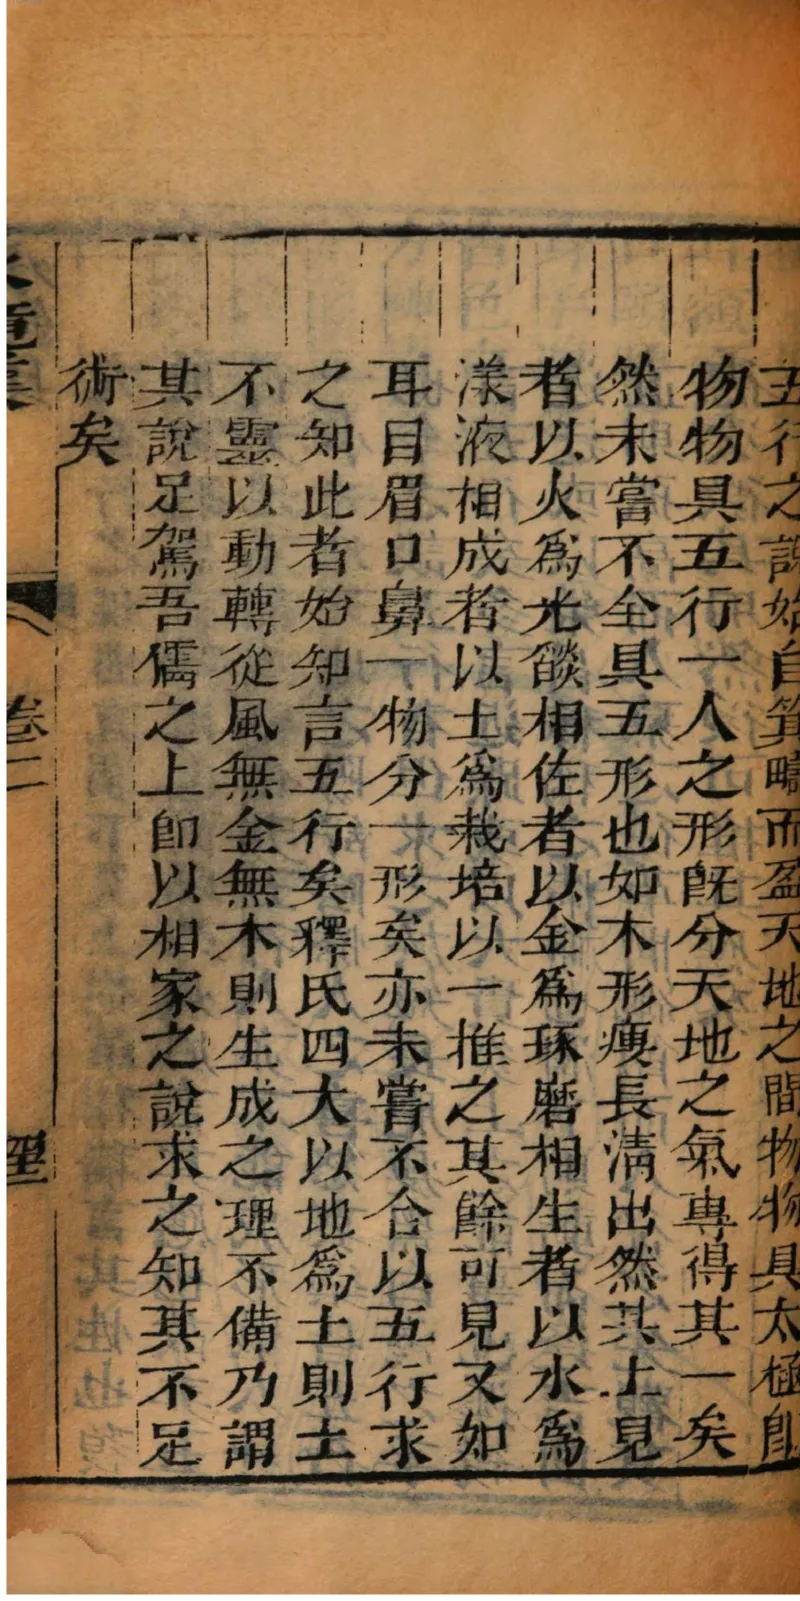 五行之說始自箕疇而盈天地之間物物具太極卽
物物具五行一人之形旣分天地之氣專得其一矣
然未嘗不全具五形也如木形瘦長淸出然其上見
者以火爲光燄相佐者以金爲琢磨相生者以水爲
漾液相成者以土爲栽培以一推之其餘可見又如
耳目眉口鼻一物分一形矣亦未嘗不合以五行求
之知此者始知言五行矣釋氏四大以地爲土則土
不靈以動轉從風無金無木則生成之理不備乃謂
其說足駕吾儒之上卽以相家之說求之知其不足
術矣
卷二